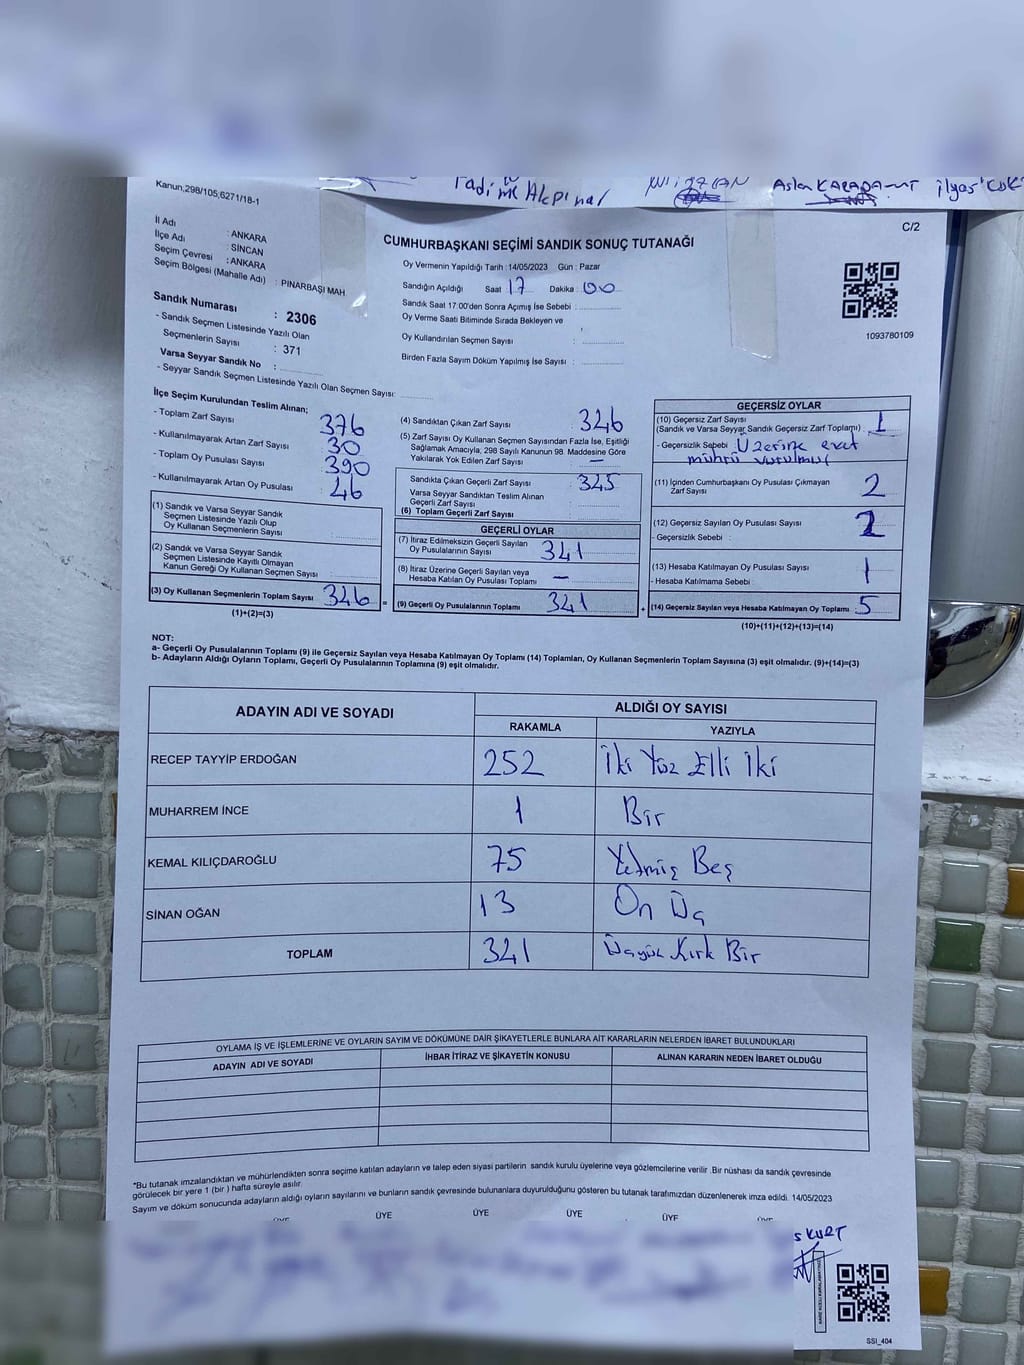 Kanun,298/105,6271/18-1
Akpınar
Aslan KARADA
C/2
İl Adı : ANKARA
İlçe Adı : SİNCAN
Seçim Çevresi : ANKARA
Seçim Bölgesi (Mahalle Adı) : PINARBAŞI MAH.
CUMHURBAŞKANI SEÇİMİ SANDIK SONUÇ TUTANAĞI
Oy Vermenin Yapıldığı Tarih :14/05/2023 Gün : Pazar
Sandığın Açıldığı Saat 17 Dakika : 00
Sandık Saat 17:00'den Sonra Açımış İse Sebebi :
Oy Verme Saati Bitiminde Sırada Bekleyen ve
Oy Kullandırılan Seçmen Sayısı :
Birden Fazla Sayım Döküm Yapılmış İse Sayısı :
1093780109
Sandık Numarası : 2306
- Sandık Seçmen Listesinde Yazılı Olan
Seçmenlerin Sayısı : 371
Varsa Seyyar Sandık No :
- Seyyar Sandık Seçmen Listesinde Yazılı Olan Seçmen Sayısı:
İlçe Seçim Kurulundan Teslim Alınan;
- Toplam Zarf Sayısı : 376
- Kullanılmayarak Artan Zarf Sayısı : 30
- Toplam Oy Pusulası Sayısı : 390
- Kullanılmayarak Artan Oy Pusulası : 46
(1) Sandık ve Varsa Seyyar Sandık
Seçmen Listesinde Yazılı Olup
Oy Kullanan Seçmenlerin Sayısı :
(2) Sandık ve Varsa Seyyar Sandık
Seçmen Listesinde Kayıtlı Olmayan
Kanun Gereği Oy Kullanan Seçmen Sayısı :
(3) Oy Kullanan Seçmenlerin Toplam Sayısı : 346
(1)+(2)=(3)
(4) Sandıktan Çıkan Zarf Sayısı : 346
(5) Zarf Sayısı Oy Kullanan Seçmen Sayısından Fazla İse, Eşitliği
Sağlamak Amacıyla, 298 Sayılı Kanunun 98. Maddesine Göre
Yakılarak Yok Edilen Zarf Sayısı : —
Sandıkta Çıkan Geçerli Zarf Sayısı : 345
Varsa Seyyar Sandıktan Teslim Alınan
Geçerli Zarf Sayısı :
(6) Toplam Geçerli Zarf Sayısı :
GEÇERLİ OYLAR
(7) İtiraz Edilmeksizin Geçerli Sayılan
Oy Pusulalarının Sayısı : 341
(8) İtiraz Üzerine Geçerli Sayılan veya
Hesaba Katılan Oy Pusulası Toplamı : —
(9) Geçerli Oy Pusulalarının Toplamı : 341
GEÇERSİZ OYLAR
(10) Geçersiz Zarf Sayısı
(Sandık ve Varsa Seyyar Sandık Geçersiz Zarf Toplamı) : 1
- Geçersizlik Sebebi : Üzerine evet
mührü vurulmuş
(11) İçinden Cumhurbaşkanı Oy Pusulası Çıkmayan
Zarf Sayısı : 2
(12) Geçersiz Sayılan Oy Pusulası Sayısı :
- Geçersizlik Sebebi :
(13) Hesaba Katılmayan Oy Pusulası Sayısı : 1
- Hesaba Katılmama Sebebi :
(14) Geçersiz Sayılan veya Hesaba Katılmayan Oy Toplamı : 5
(10)+(11)+(12)+(13)=(14)
NOT:
a- Geçerli Oy Pusulalarının Toplamı (9) ile Geçersiz Sayılan veya Hesaba Katılmayan Oy Toplamı (14) Toplamları, Oy Kullanan Seçmenlerin Toplam Sayısına (3) eşit olmalıdır. (9)+(14)=(3)
b- Adayların Aldığı Oyların Toplamı, Geçerli Oy Pusulalarının Toplamına (9) eşit olmalıdır.
ADAYIN ADI VE SOYADI ALDIĞI OY SAYISI
RAKAMLA YAZIYLA
RECEP TAYYİP ERDOĞAN 252 İki Yüz Elli İki
MUHARREM İNCE 1 Bir
KEMAL KILIÇDAROĞLU 75 Yetmiş Beş
SİNAN OĞAN 13 On Üç
TOPLAM 341 Üçyüz Kırk Bir
OYLAMA İŞ VE İŞLEMLERİNE VE OYLARIN SAYIM VE DÖKÜMÜNE DAİR ŞİKAYETLERLE BUNLARA AİT KARARLARIN NELERDEN İBARET BULUNDUKLARI
ADAYIN ADI VE SOYADI İHBAR İTİRAZ VE ŞİKAYETİN KONUSU ALINAN KARARIN NEDEN İBARET OLDUĞU
*Bu tutanak imzalandıktan ve mühürlendikten sonra seçime katılan adayların ve talep eden siyasi partilerin sandık kurulu üyelerine veya gözlemcilerine verilir .Bir nüshası da sandık çevresinde
görülecek bir yere 1 (bir ) hafta süreyle asılır.
Sayım ve döküm sonucunda adayların aldığı oyların sayılarını ve bunların sandık çevresinde bulunanlara duyurulduğunu gösteren bu tutanak tarafımızdan düzenlenerek imza edildi. 14/05/2023
ÜYE ÜYE ÜYE ÜYE ÜYE ÜYE
KURT
SSI_404